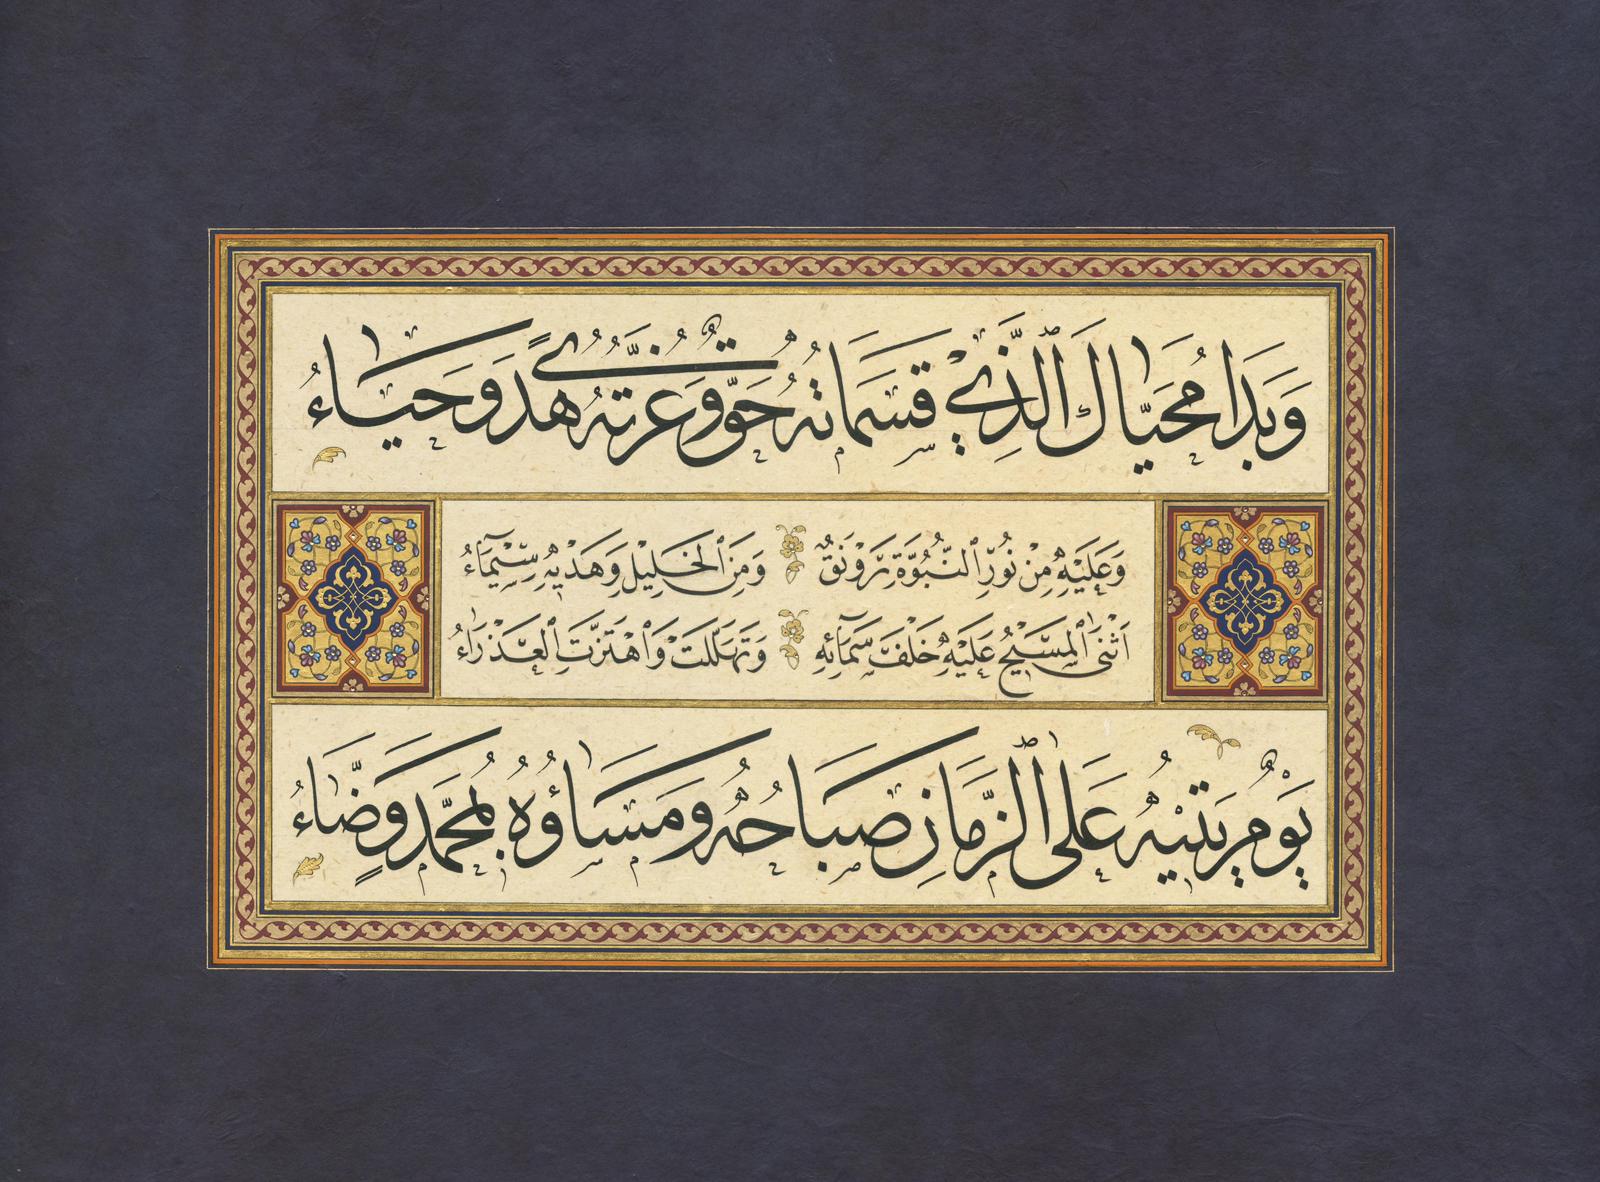 وَبَدَا مُحَيَّاكَ ٱلَّذِي قَسَمَاتُهُ حَقٌّ وَغُرَّتُهُ هُدًى وَحَيَاءُ
وَعَلَيْهِ مِنْ نُورِ ٱلنُّبُوَّةِ رَوْنَقٌ وَمِنَ ٱلْخَلِيلِ وَهَدْيِهِ سِيْمَاءُ
اَثْنَى ٱلْمَسِيحُ عَلَيْهِ خَلْفَ سَمَائِهِ وَتَهَلَّلَتْ وَٱهْتَزَّتِ ٱلْعَذْرَاءُ
يَوْمٌ يَتِيهُ عَلَى ٱلزَّمَانِ صَبَاحُهُ وَمَسَاؤُهُ بِمُحَمَّدٍ وَضَّاءُ